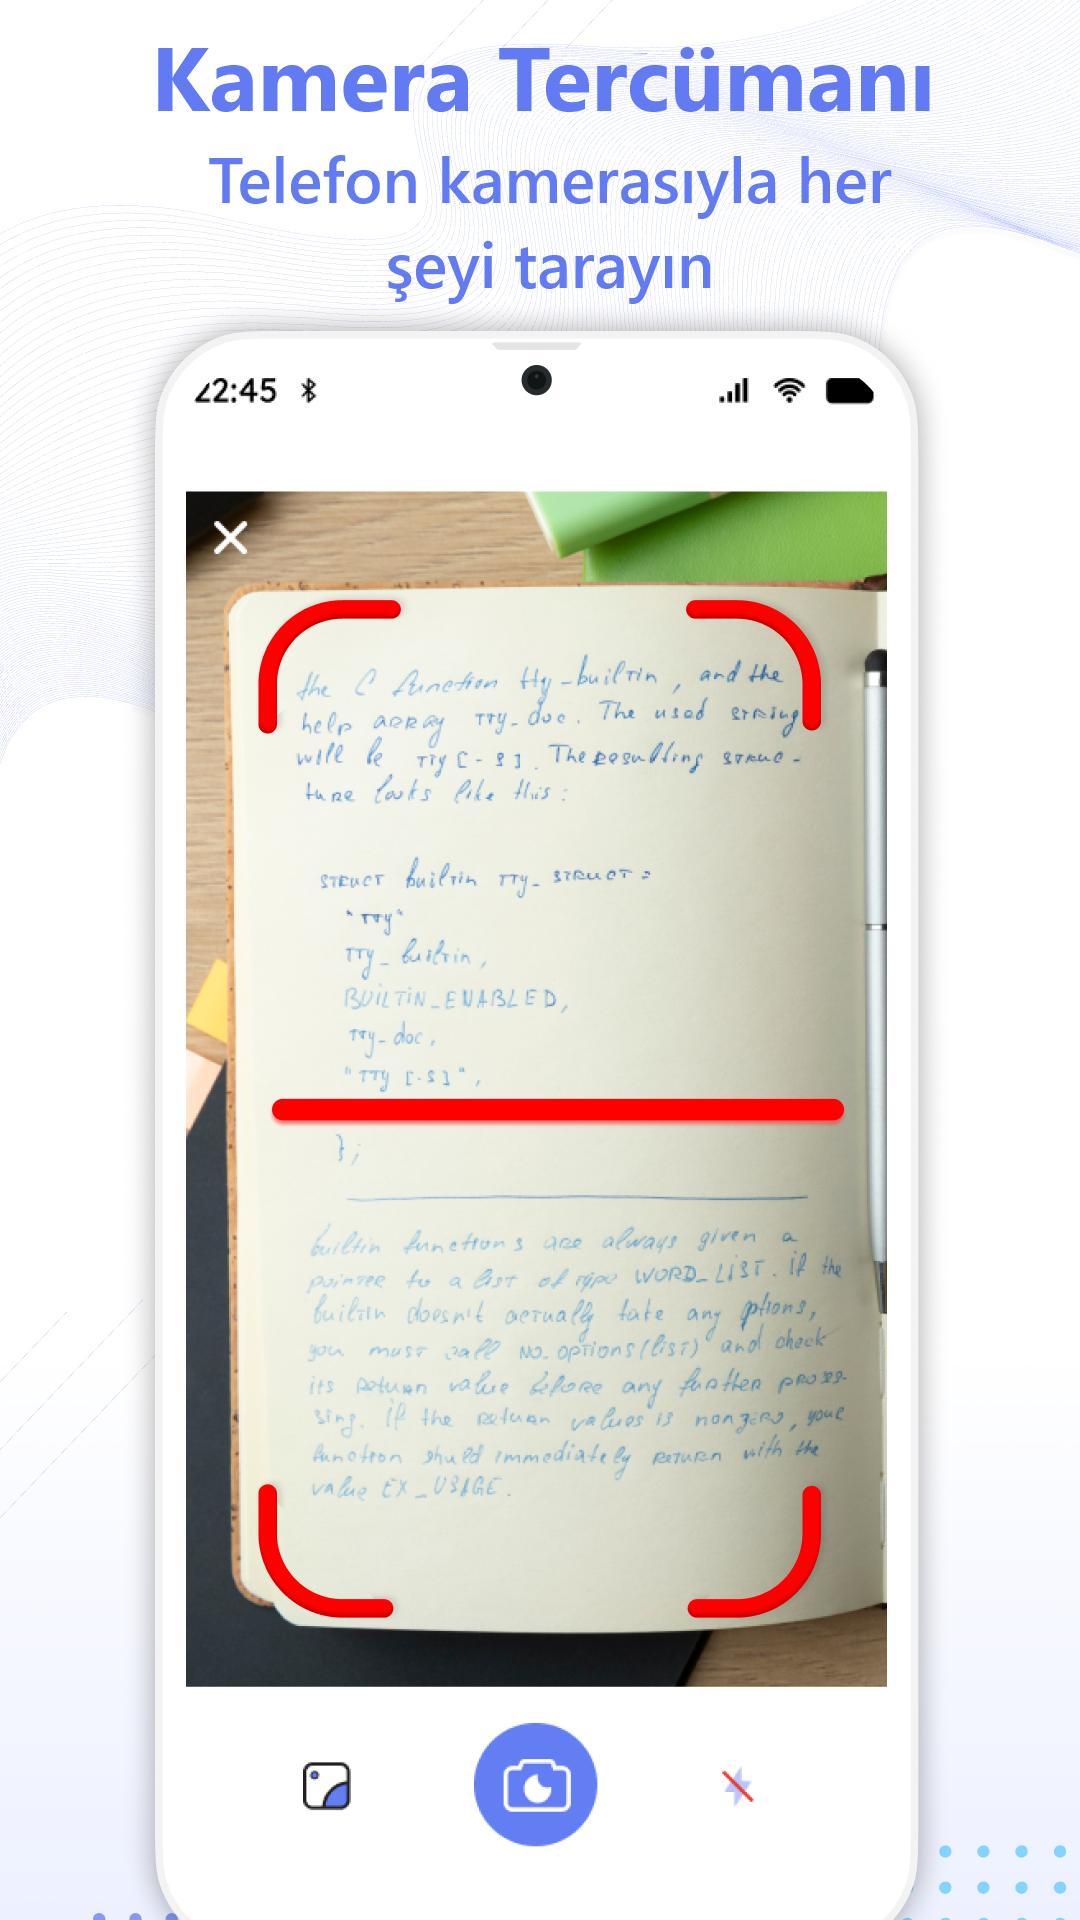 Kamera Tercümanı
Telefon kamerasıyla her
şeyi tarayın
22:45
the C function tty-builtin, and the
help array tty-doc. The used string
will be tty [-s]. The resulting struc-
ture looks like this:
struct builtin tty_struct =
"tty"
tty_builtin,
BUILTIN_ENABLED,
tty-doc,
"tty [-s]",
};
builtin functions are always given a
pointer to a list of type WORD_LIST. if the
builtin doesn't actually take any ptions,
you must call no-options(list) and check
its return value before any further proses-
sing. if the return values is nonzero, your
function should immediately return with the
value EX_USAGE.